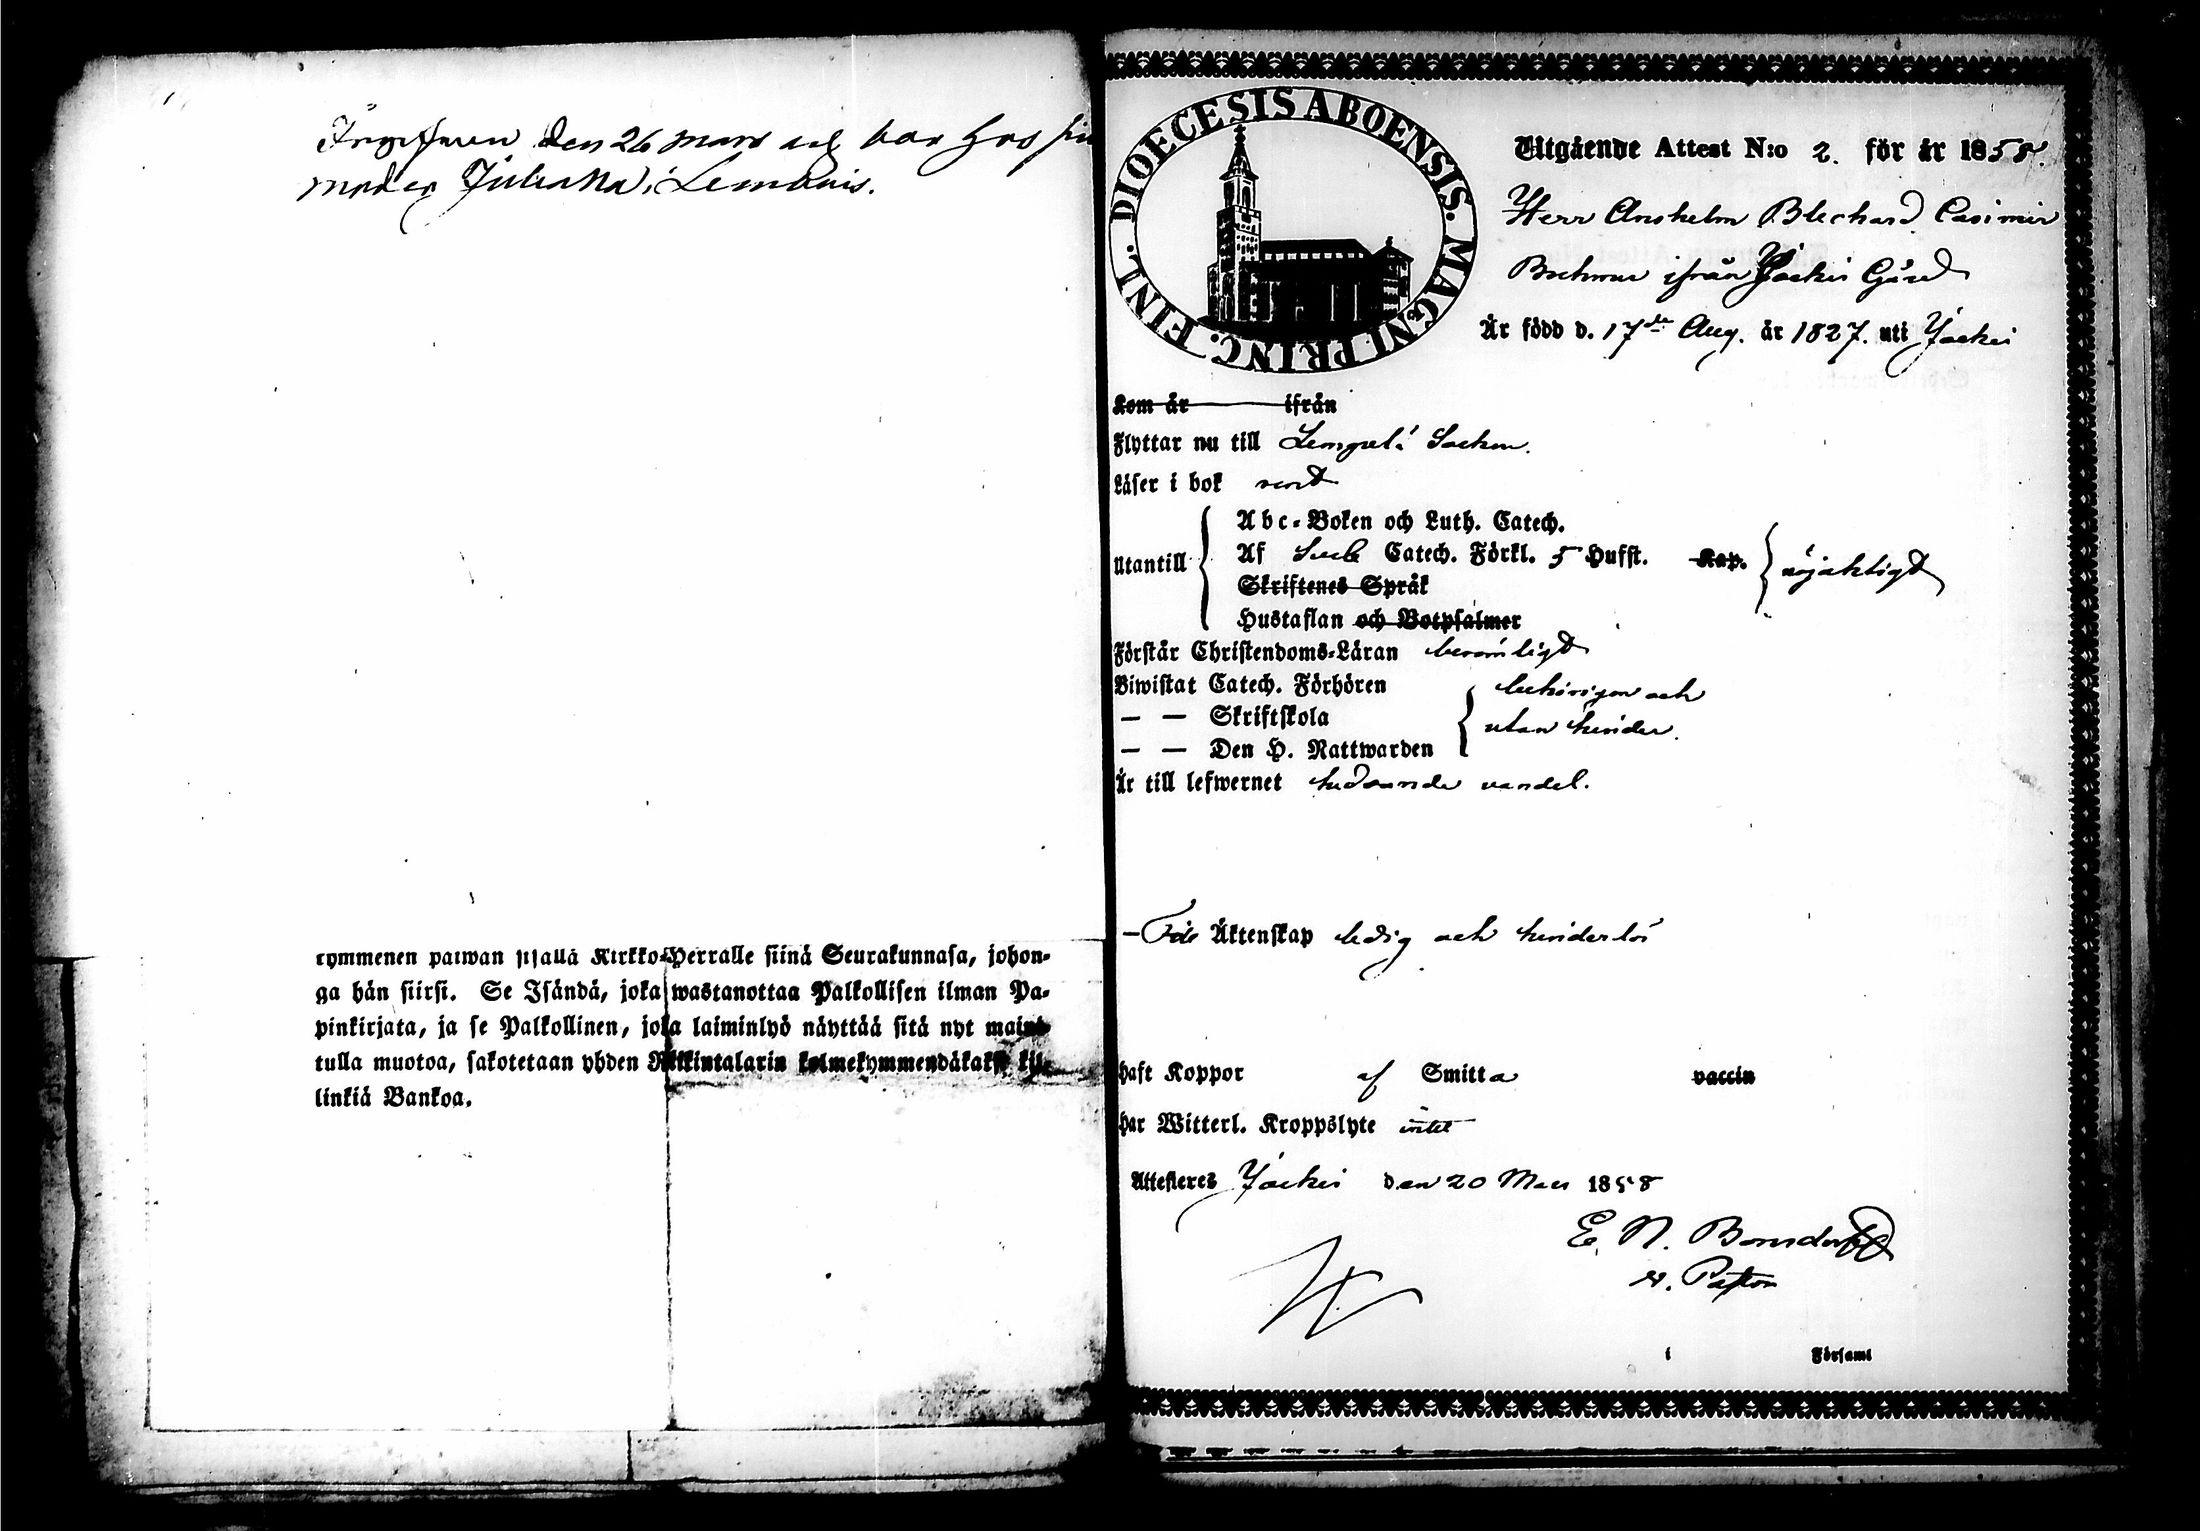 Ingifwen den 26 Mars och bor hos sin
moder Juliana i Lembois.
kymmenen päiwän sisällä Kirkko-Herralle siinä Seurakunnasa, johon-
ga hän siirsi. Se Isändä, joka wastanottaa Palkollisen ilman Pa-
pinkirjata, ja se Palkollinen, joka laiminlyö näyttää sitä nyt maini-
tulla muotoa, sakotetaan yhden Riikintalarin kolmekymmendäkaksi kil-
linkiä Bankoa.
DIOECESIS ABOENSIS. MAGNI PRINC. FINL.
Utgående Attest N:o 2. för år 1858.
Herr Anshelm Blechard Casimir
ifrån Jockis Gård
Är född d. 17de Aug. år 1827. uti Jockis
Kom år ifrån
Flyttar nu till Lempelä Socken.
Läser i bok rent
Utantill
Abc-Boken och Luth. Catech.
Af Sveb Catech. Förkl. 5 Hufst. Kap. nöjaktigt
Skriftenes Språk
Hustaflan och Botpsalmer
Förstår Christendoms-Läran berömligt
Biwistat Catech. Förhören behörigen och
— — Skriftskola utan hinder.
— — Den H. Nattwarden
Är till lefwernet hedrande vandel.
Till Äktenskap ledig och hinderlös
haft Koppor af Smitta vaccin
har Witterl. Kroppslyte intet
Attesteres Jockis den 20 Mars 1858
E. N. Bonsdorff
v. Pastor
i Församl